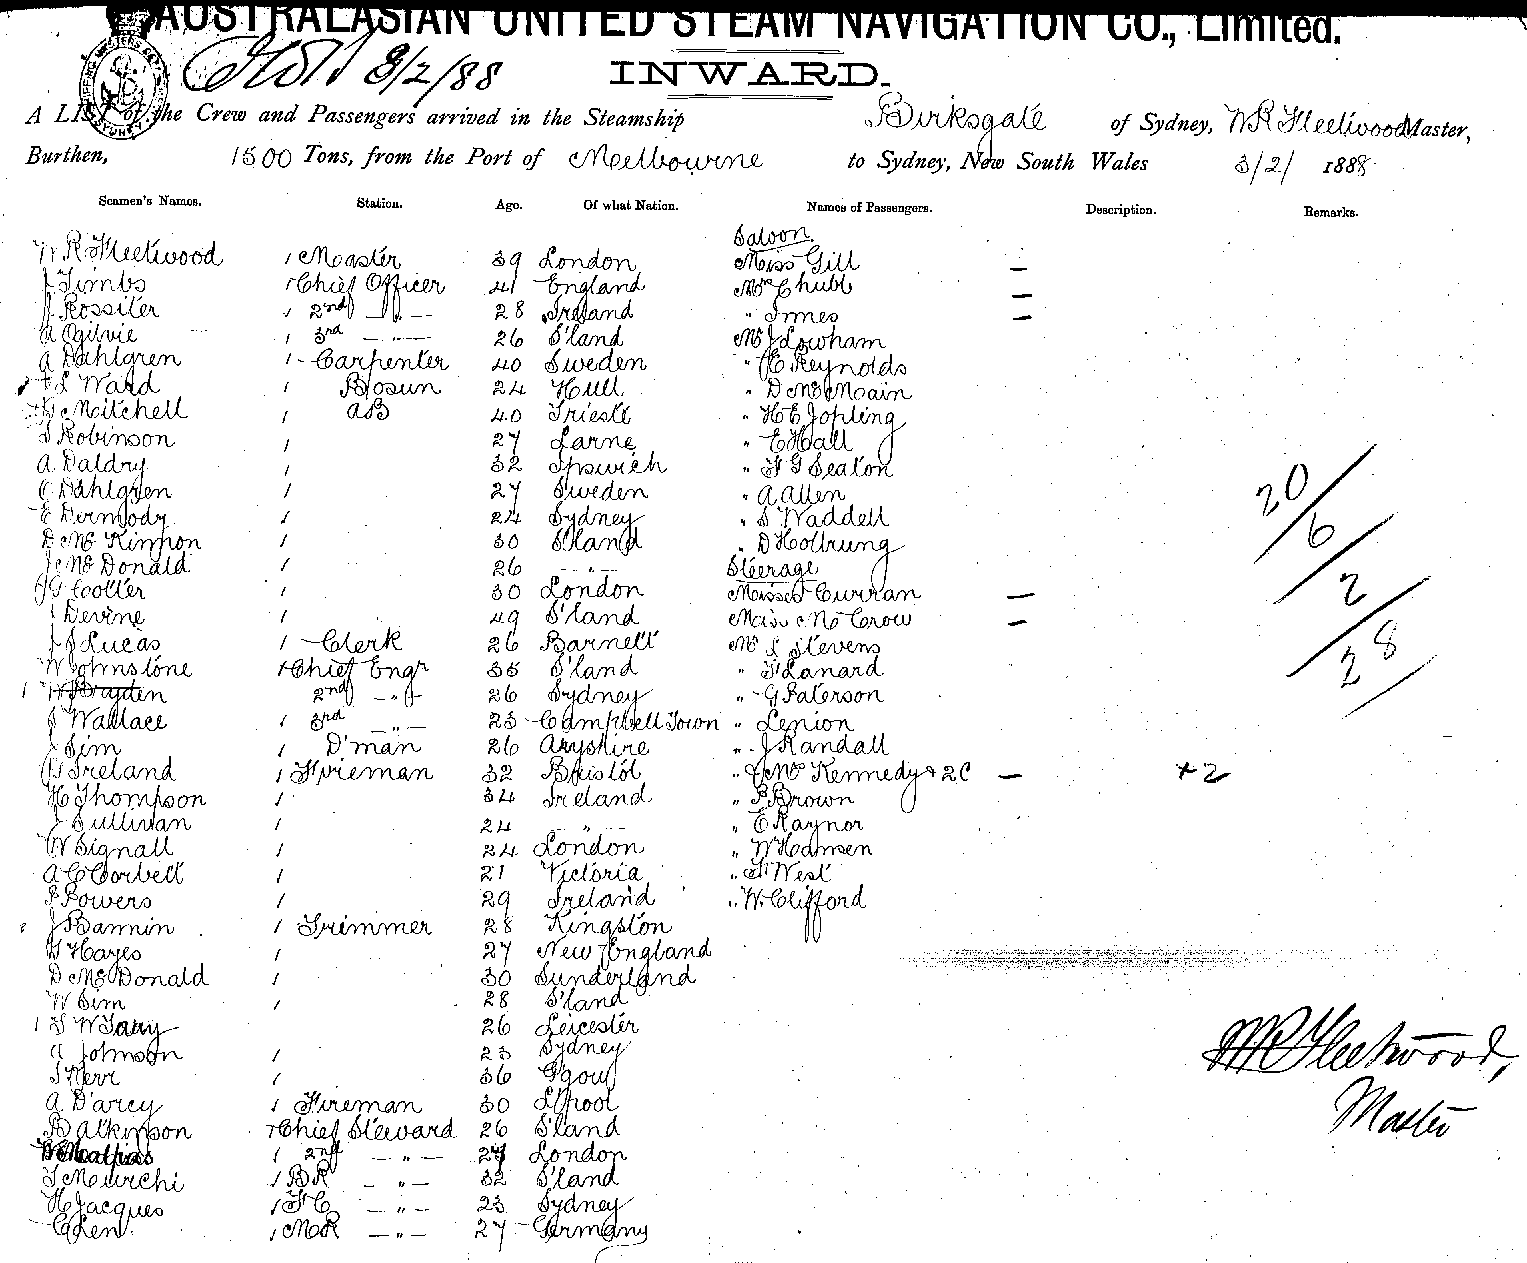 AUSTRALASIAN UNITED STEAM NAVIGATION CO., Limited.
3/2/88
INWARD.
A LIST of the Crew and Passengers arrived in the Steamship Birksgate of Sydney, W R Fleetwood Master,
Burthen, 1500 Tons, from the Port of Melbourne to Sydney, New South Wales 3/2/ 1888
Seamen's Names. Station. Age. Of what Nation. Names of Passengers. Description. Remarks.
Saloon
W R Fleetwood 1 Master 39 London Miss Gill —
J Timbs 1 Chief Officer 41 England Mrs Chubb —
J Rossiter 1 2nd — " — 28 Ireland " Innes —
A Ogilvie 1 3rd — " — 26 S'land Mr J Lowham
A Dahlgren 1 Carpenter 40 Sweden " C Reynolds
L Ward 1 Bosun 24 Hull " D McMain
Mitchell 1 AB 40 Trieste " H E Jopling
S Robinson 1 27 Larne " E Hall
A Daldry 1 32 Ipswich " F G Seaton
C Dahlgren 1 27 Sweden " A Allen
E Dermody 1 24 Sydney " S Waddell
D McKinnon 1 30 S'land " D Holtrung
J McDonald 26 — " — Steerage
J G Cotter 1 30 London Misses Curran —
J Devine 1 49 S'land Miss McCrow —
J S Lucas 1 Clerk 26 Barnett Mr L Stevens
W Johnstone 1 Chief Engr 35 S'land " Lanard
1 W Brayden 2nd — " — 26 Sydney " G Paterson
J Wallace 1 3rd — " — 23 Campbell Town " Lenion
J Sim 1 D'man 26 Aryshire " J Randall
G Ireland 1 Fireman 32 Bristol " McKennedy + 2C — + 2
H Thompson 1 34 Ireland " P Brown
J Sullivan 1 24 — " — " E Raynor
W Signall 1 24 London " W Hansen
A C Corbett 1 21 Victoria " F West
P Powers 1 29 Ireland " W Clifford
J Bannin 1 Trimmer 28 Kingston
G Hayes 1 27 New England
D McDonald 1 30 Sunderland
W Sim 1 28 S'land
1 26 Leicester
A Johnson 1 23 Sydney
J Kerr 1 36 G'gow
A D'arcy 1 Fireman 30 L'pool
B Atkinson 1 Chief Steward 26 S'land
1 2nd — " — London
J Murchi 1 BR — " — 32 S'land
H Jacques 1 FC — " — 23 Sydney
C Len 1 MR — " — 27 Germany
20/6/2/28
W R Fleetwood,
Master